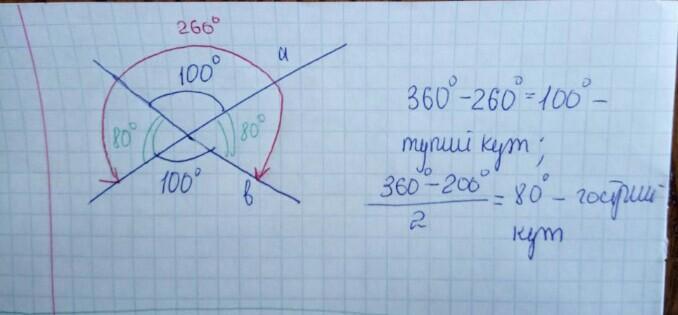 260°
a
100°
80°
80°
100°
b
360° - 260° = 100° -
тупий кут;
360° - 200°
2
= 80° - гострий
кут